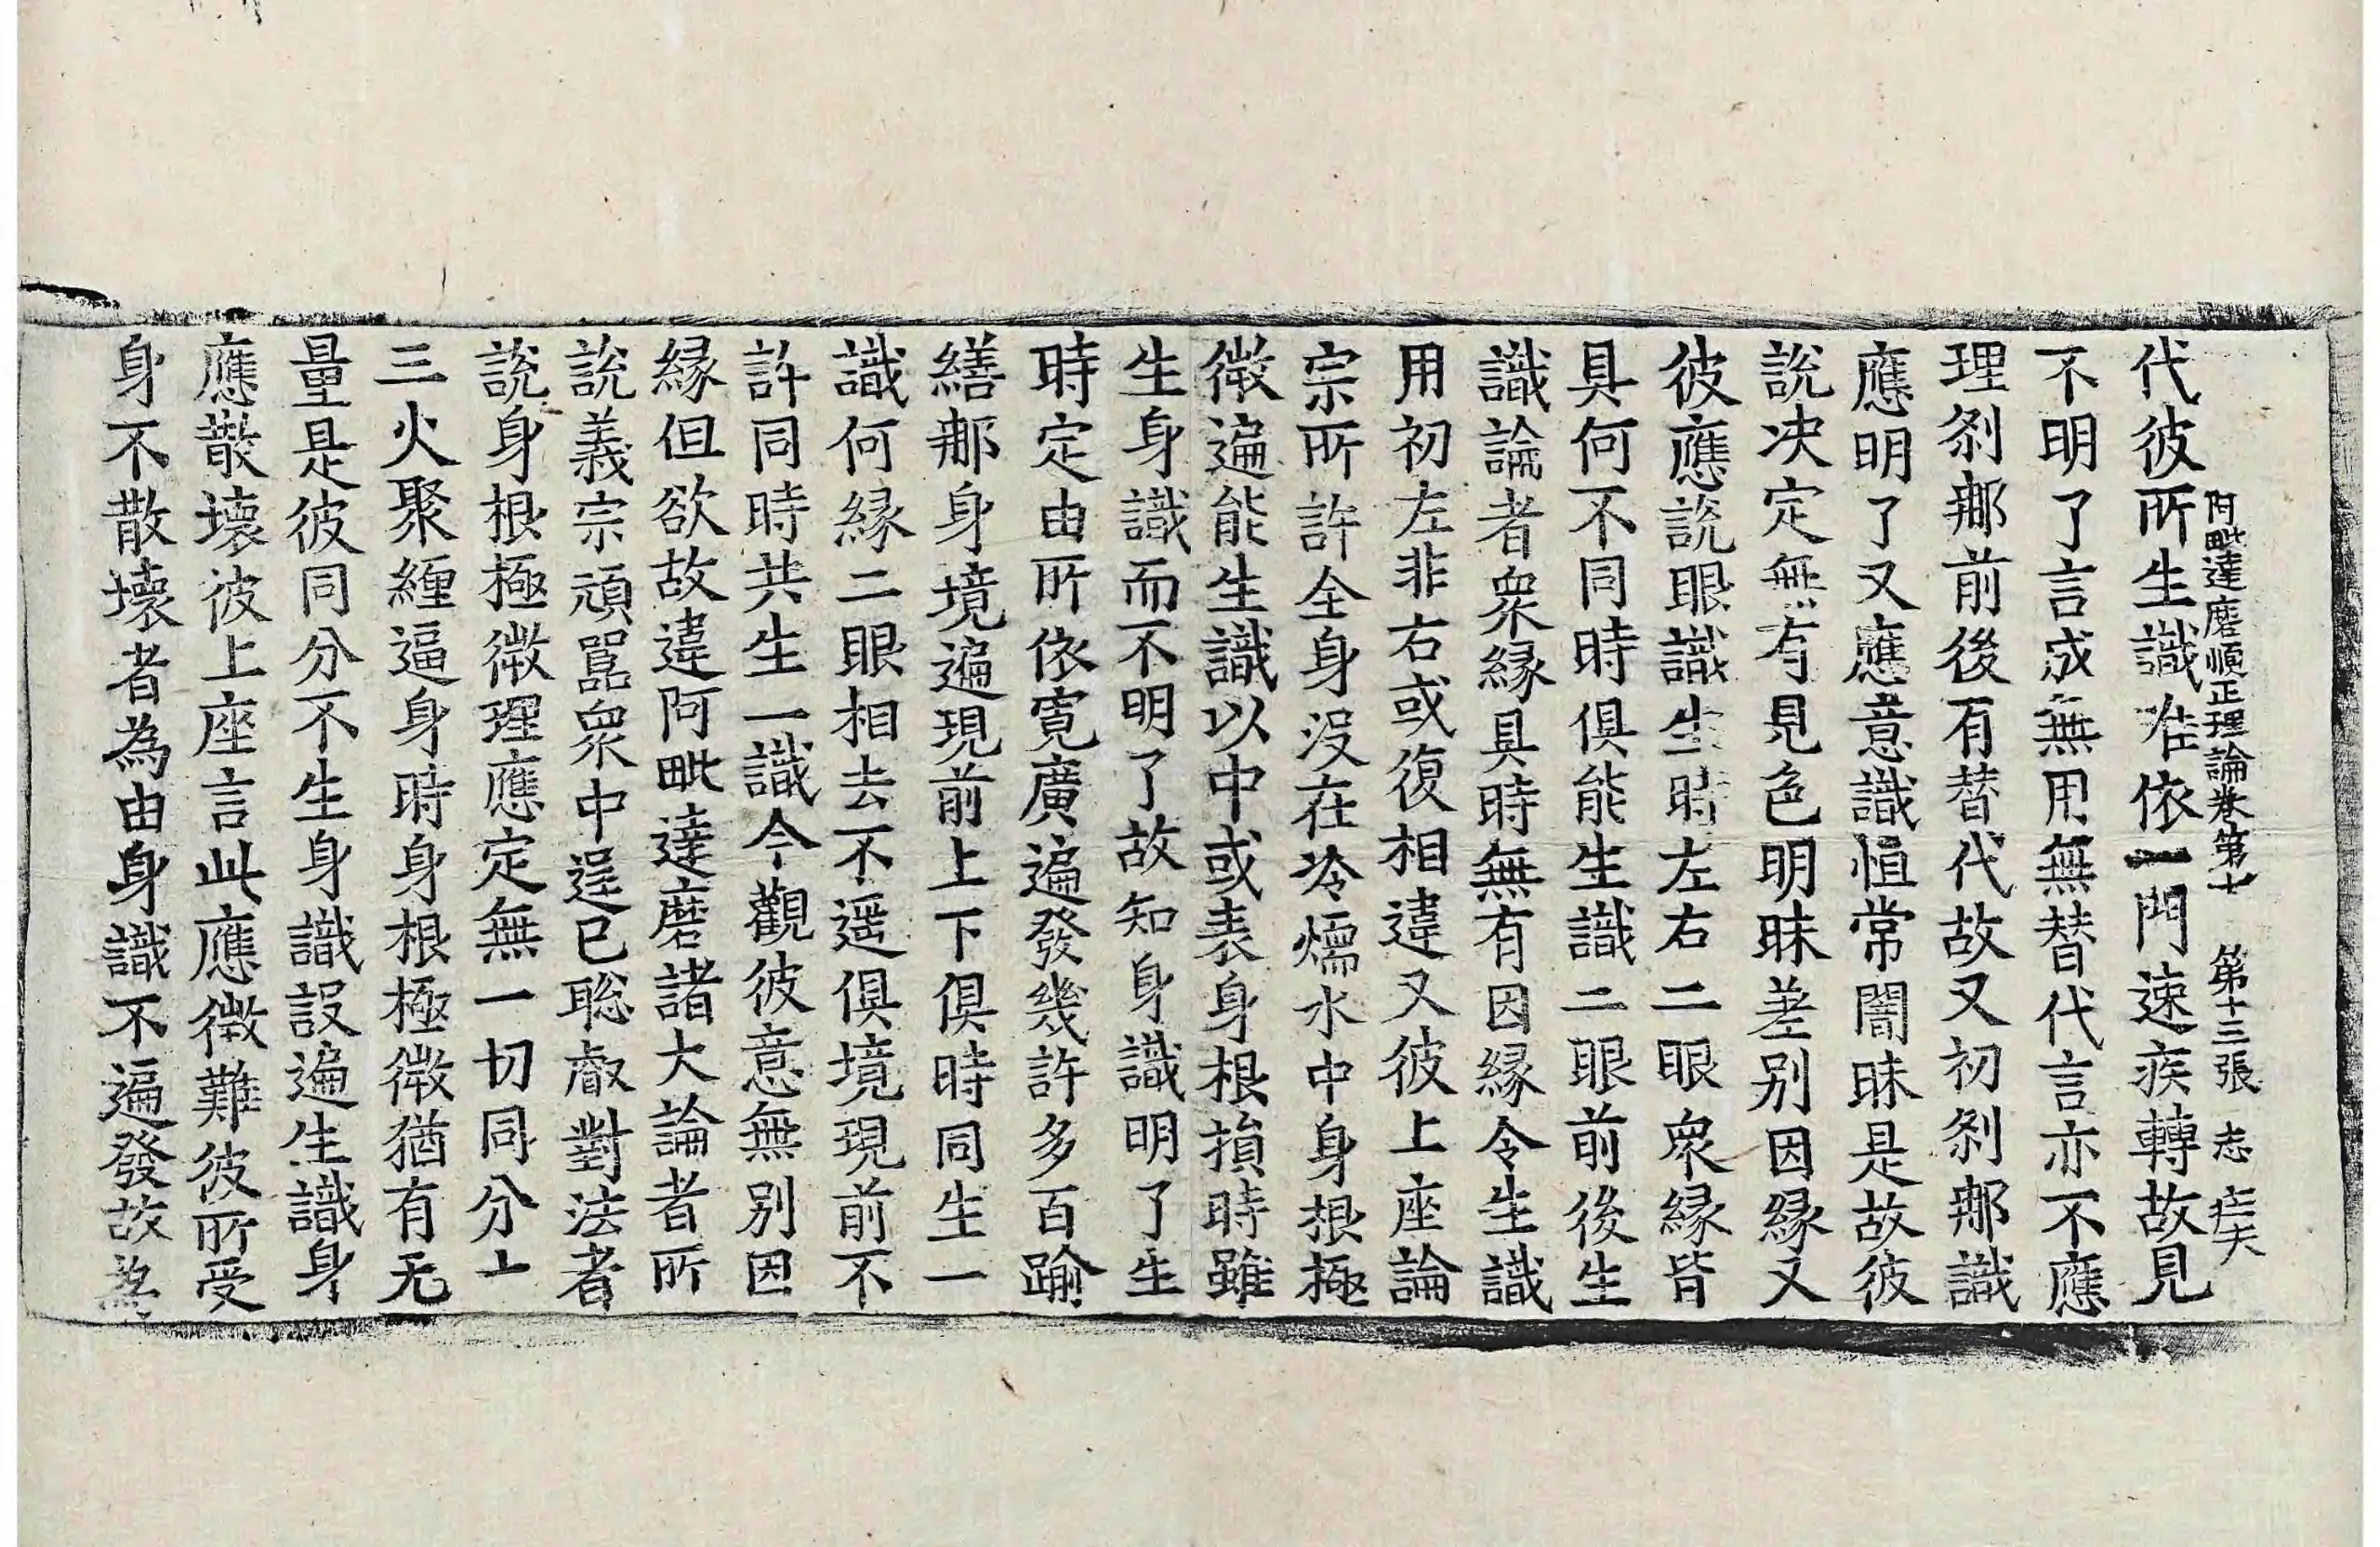 阿毗達磨順正理論卷第七　第十三張　志
代彼所生識唯依一門速疾轉故見
不明了言成無用無替代言亦不應
理剎那前後有替代故又初剎那識
應明了又應意識恒常闇昧是故彼
說決定無有見色明昧差別因緣又
彼應說眼識生時左右二眼衆緣皆
具何不同時俱能生識二眼前後生
識論者衆緣具時無有因緣令生識
用初左非右或復相違又彼上座論
宗所許全身没在冷煗水中身根極
微遍能生識以中或表身根損時雖
生身識而不明了故知身識明了生
時定由所依寬廣遍發幾許多百踰
繕那身境遍現前上下俱時同生一
識何緣二眼相去不遥俱境現前不
許同時共生一識今觀彼意無別因
緣但欲故違阿毗達磨諸大論者所
說義宗頑嚚衆中逞已聡叡對法者
說身根極微理應定無一切同分十
三火聚纏逼身時身根極微猶有无
量是彼同分不生身識設遍生識身
應散壞彼上座言此應徵難彼所受
身不散壞者為由身識不遍發故為